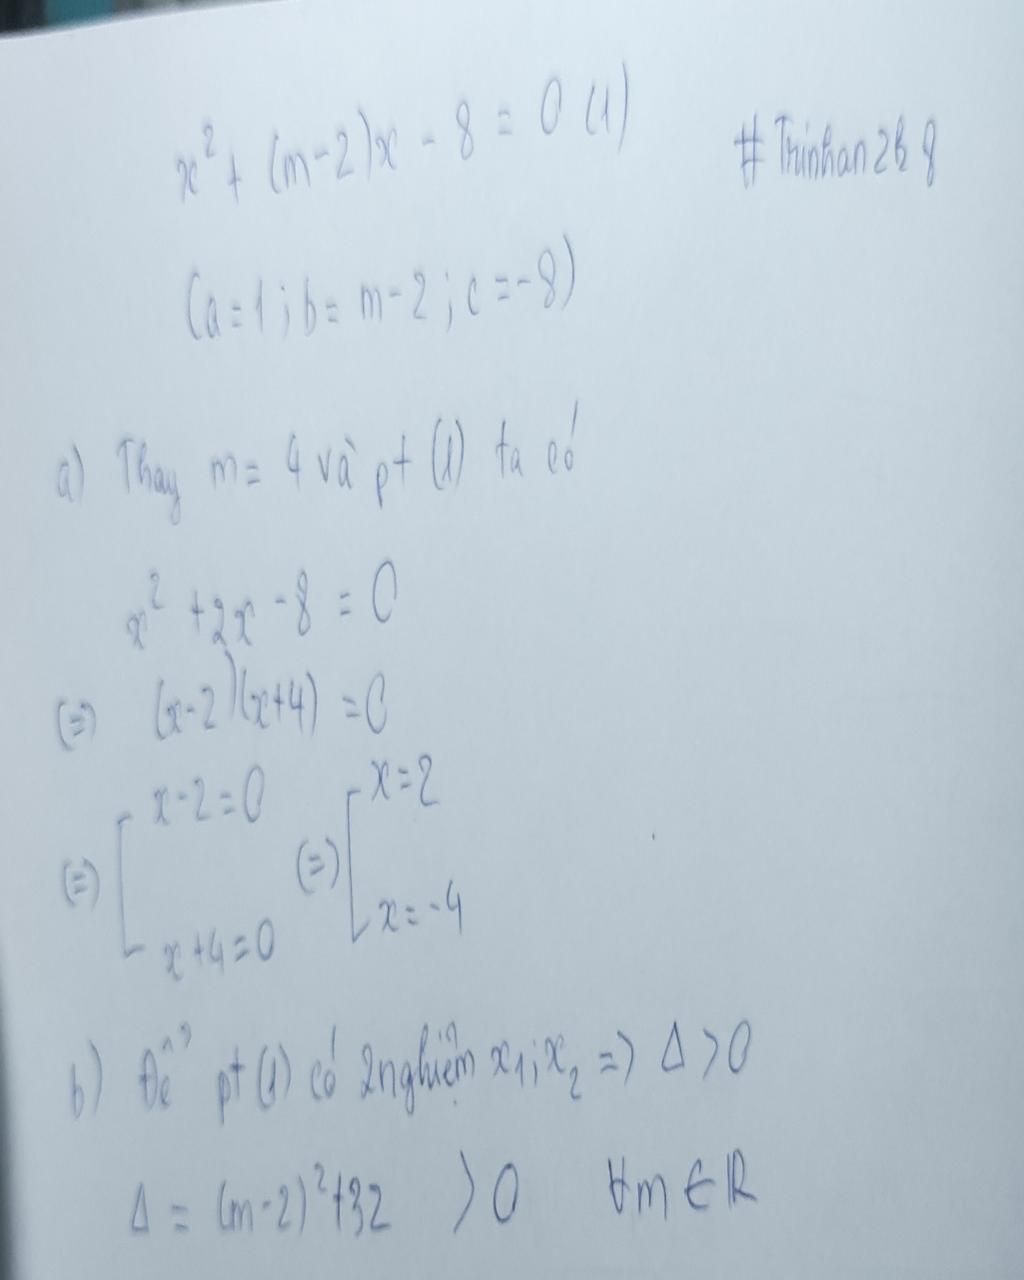 x² + (m-2)x - 8 = 0 (1)
# Thinhan2k8
(a=1; b= m-2; c=-8)
a) Thay m= 4 và pt (1) ta có
x² +2x -8 = 0
(=) (x-2)(x+4) =0
(=) [ x-2=0 (=) [ x=2
x+4=0 x=-4
b) Để pt (1) có 2 nghiệm x₁; x₂ => Δ > 0
Δ = (m-2)²+32 > 0 ∀m ∈ ℝ